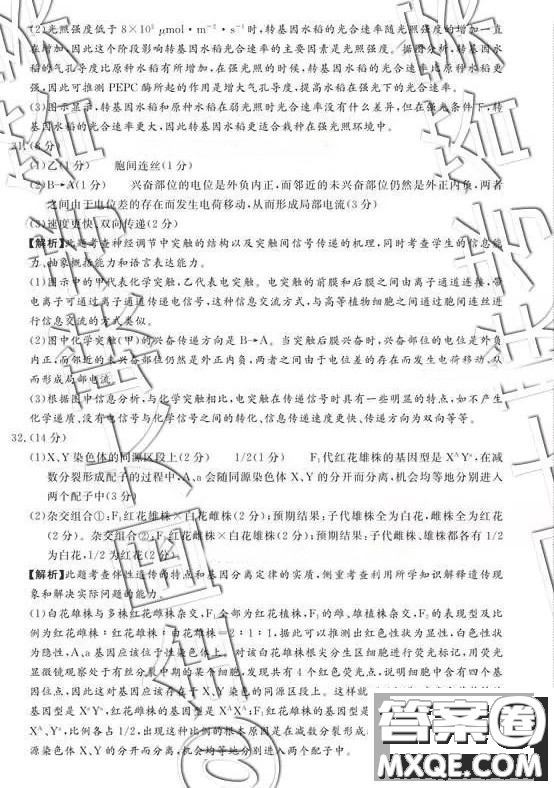 (2)光照强度低于 8×10² μmol·m⁻²·s⁻¹ 时,转基因水稻的光合速率随光照强度的增加一直
在增加,因此这个阶段影响转基因水稻光合速率的主要因素是光照强度。据图分析,转基因水
稻的气孔导度比原种水稻有所增加,在强光照的时候,转基因水稻的光合速率比原种水稻更
强,因此可推测 PEPC 酶所起的作用是增大气孔导度,提高水稻在强光下的光合速率。
(3)图示显示,转基因水稻和原种水稻在弱光照时光合速率没有什么差异,但在强光条件下,转
基因水稻的光合速率更大,因此转基因水稻更适合栽种在强光照环境中。
31.(8分)
(1)乙(1分) 胞间连丝(1分)
(2)B→A(1分) 兴奋部位的电位是外负内正,而邻近的未兴奋部位仍然是外正内负,两者
之间由于电位差的存在而发生电荷移动,从而形成局部电流(3分)
(3)速度更快、双向传递(2分)
【解析】此题考查神经调节中突触的结构以及突触间信号传递的机理,同时考查学生的信息能
力、抽象概括能力和语言表达能力。
(1)图示中的甲代表化学突触,乙代表电突触。电突触的前膜和后膜之间由离子通道连接,带
电离子可通过离子通道传递电信号,这种信息交流方式,与高等植物细胞之间通过胞间连丝进
行信息交流的方式类似。
(2)图中化学突触(甲)的兴奋传递方向是 B→A。当突触后膜兴奋时,兴奋部位的电位是外负
内正,而邻近的未兴奋部位仍然是外正内负,两者之间由于电位差的存在而发生电荷移动,从
而形成局部电流。
(3)根据图中信息分析,与化学突触相比,电突触在传递信号时具有一些明显的特点,如不产生
化学递质、没有电信号与化学信号之间的转化、信息传递速度更快、传递方向为双向等等。
32.(14分)
(1)X、Y染色体的同源区段上(2分) 1/2(1分) F₁代红花雄株的基因型是 XᴬYᵃ,在减
数分裂形成配子的过程中,A、a会随同源染色体 X、Y 的分开而分离,机会均等地分别进入
两个配子中(3分)
(2)杂交组合①:F₁红花雄株×白花雌株(2分);预期结果:子代雄株全为白花,雌株全为红花
(2分)。杂交组合②:F₁红花雌株×白花雄株(2分);预期结果:子代雌株、雄株都各有1/2
为白花,1/2为红花(2分)
【解析】此题考查伴性遗传的特点和基因分离定律的实质,侧重考查利用所学知识解释遗传现
象和解决实际问题的能力。
(1)白花雄株与多株红花雌株杂交,F₁全部为红花植株,F₁的雌、雄植株杂交,F₂的表现型及比
例为红花雌株:红花雄株:白花雄株=2:1:1,据此可以推测出红色性状为显性,白色性状
为隐性,A、a基因应该位于性染色体上。对该白花雄株根尖分生区细胞进行荧光标记,用荧光
显微镜观察处于有丝分裂中期的某个细胞,发现共有4个红色荧光点,说明细胞中含有四个基
因位点,因此这对基因应该存在于X、Y染色的同源区段上。这样就
基因型是 XᵃYᵃ,红花雌株的基因型是 XᴬXᴬ;F₁红花雄株的基因型是
Xᴬ、Yᵃ,比例各占1/2,出现这种比例的根本原因是在减数分裂形成
源染色体X、Y的分开而分离,机会均等地分别进入两个配子中。
答案圈
MXQE.COM